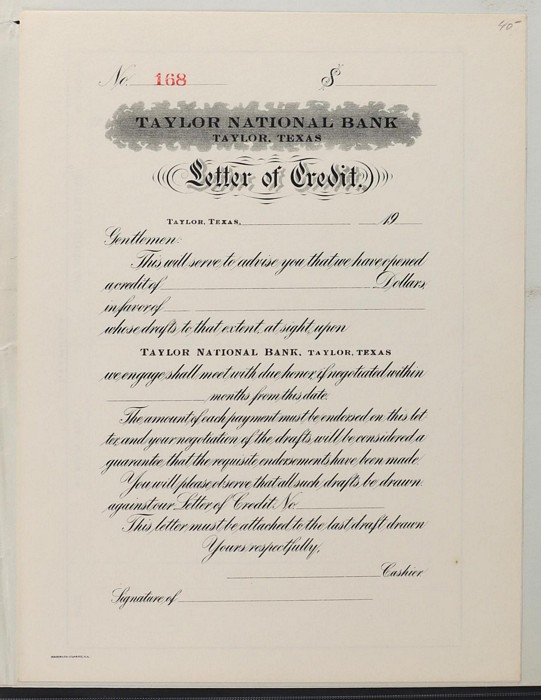 40-
No. 168 $
TAYLOR NATIONAL BANK
TAYLOR, TEXAS
Letter of Credit.
TAYLOR, TEXAS, 19
Gentlemen:
This will serve to advise you that we have opened
a credit of Dollars,
in favor of
whose drafts to that extent, at sight, upon
TAYLOR NATIONAL BANK, TAYLOR, TEXAS
we engage shall meet with due honor, if negotiated within
months from this date.
The amount of each payment must be endorsed on this let
ter, and your negotiation of the drafts will be considered a
guarantee that the requisite endorsements have been made.
You will please observe that all such drafts be drawn
against our Letter of Credit No.
This letter must be attached to the last draft drawn
Yours respectfully,
Cashier
Signature of